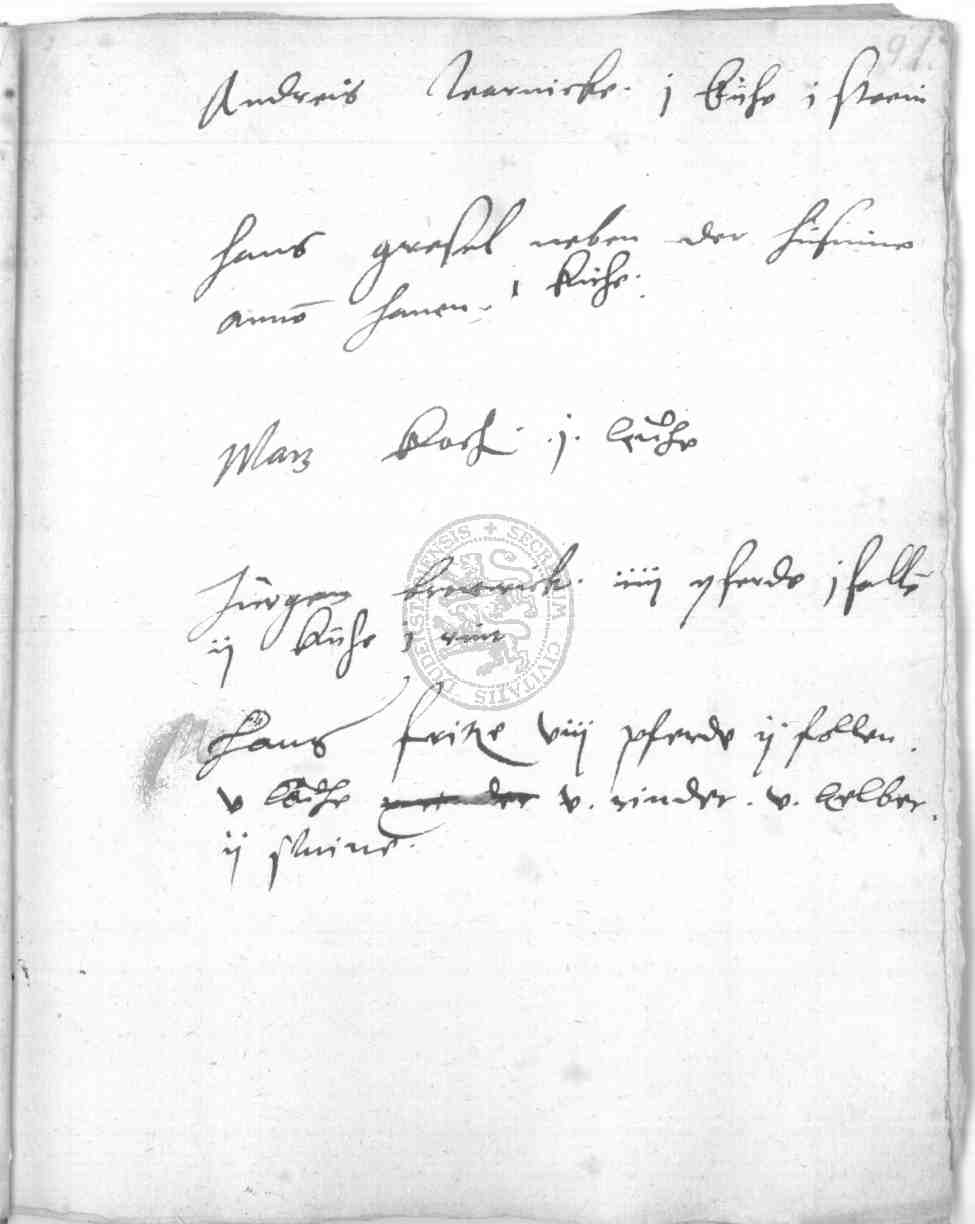 91.
Andreis j kuhe j swein
Hans gresel neben der
anno hanen. 1 kuhe.
Marz Koch. j. kuhe
Jurgen iiij pferde j folle
ij kuhe j rint
Hans fritze viij pferde ij follen.
v kuhe v. rinder. v. kelber.
ij swine.
SECRETUM CIVITATIS DUDERSTADENSIS